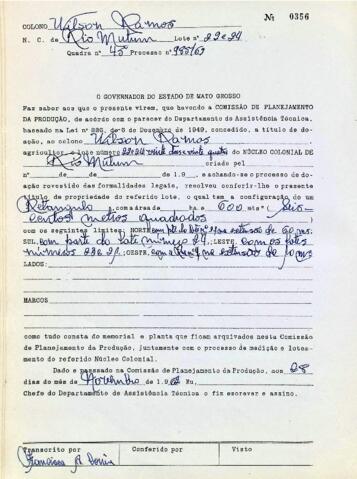 Nº 0356
COLONO Wilson Ramos
N. C. de Rio Mutum Lote nº 22 e 24
Quadra nº 45 Processo nº 985/63
O GOVERNADOR DO ESTADO DE MATO GROSSO
Faz saber aos que o presente virem, que havendo a COMISSÃO DE PLANEJAMENTO
DA PRODUÇÃO, de acôrdo com o parecer do Departamento de Assistência Técnica,
baseado na Lei nº 336, de 6 de Dezembro de 1949, concedido, a título de doa-
ção, ao colono Wilson Ramos
agricultor, o lote número 22 e 24 vinte dois e vinte quatro do NÚCLEO COLONIAL DE
Rio Mutum criado pel
nº de de de 19 , e achando-se o processo de doa-
ção revestido das formalidades legais, resolveu conferir-lhe o presente
título de propriedade do referido lote, o qual tem a configuração de um
Retangulo com a área de ha e 600 mts² (seis-
centos metros quadrados
com os seguintes limites: NORTE com na extensão de 60 ms:
SUL, com parte do lote número 24.; LESTE, com os lotes
números 23 e 21.; OESTE, com a na extensão de
LADOS:
MARCOS
como tudo consta do memorial e planta que ficam arquivados nesta Comissão
de Planejamento da Produção, juntamente com o processo de medição e lotea-
mento do referido Núcleo Colonial.
Dado e passado na Comissão de Planejamento da Produção, aos 28
dias do mês de Novembro de 196 Eu,
Chefe do Departamento de Assistência Técnica o fiz escrever e assino.
Transcrito por Conferido por Visto
Francisca A.